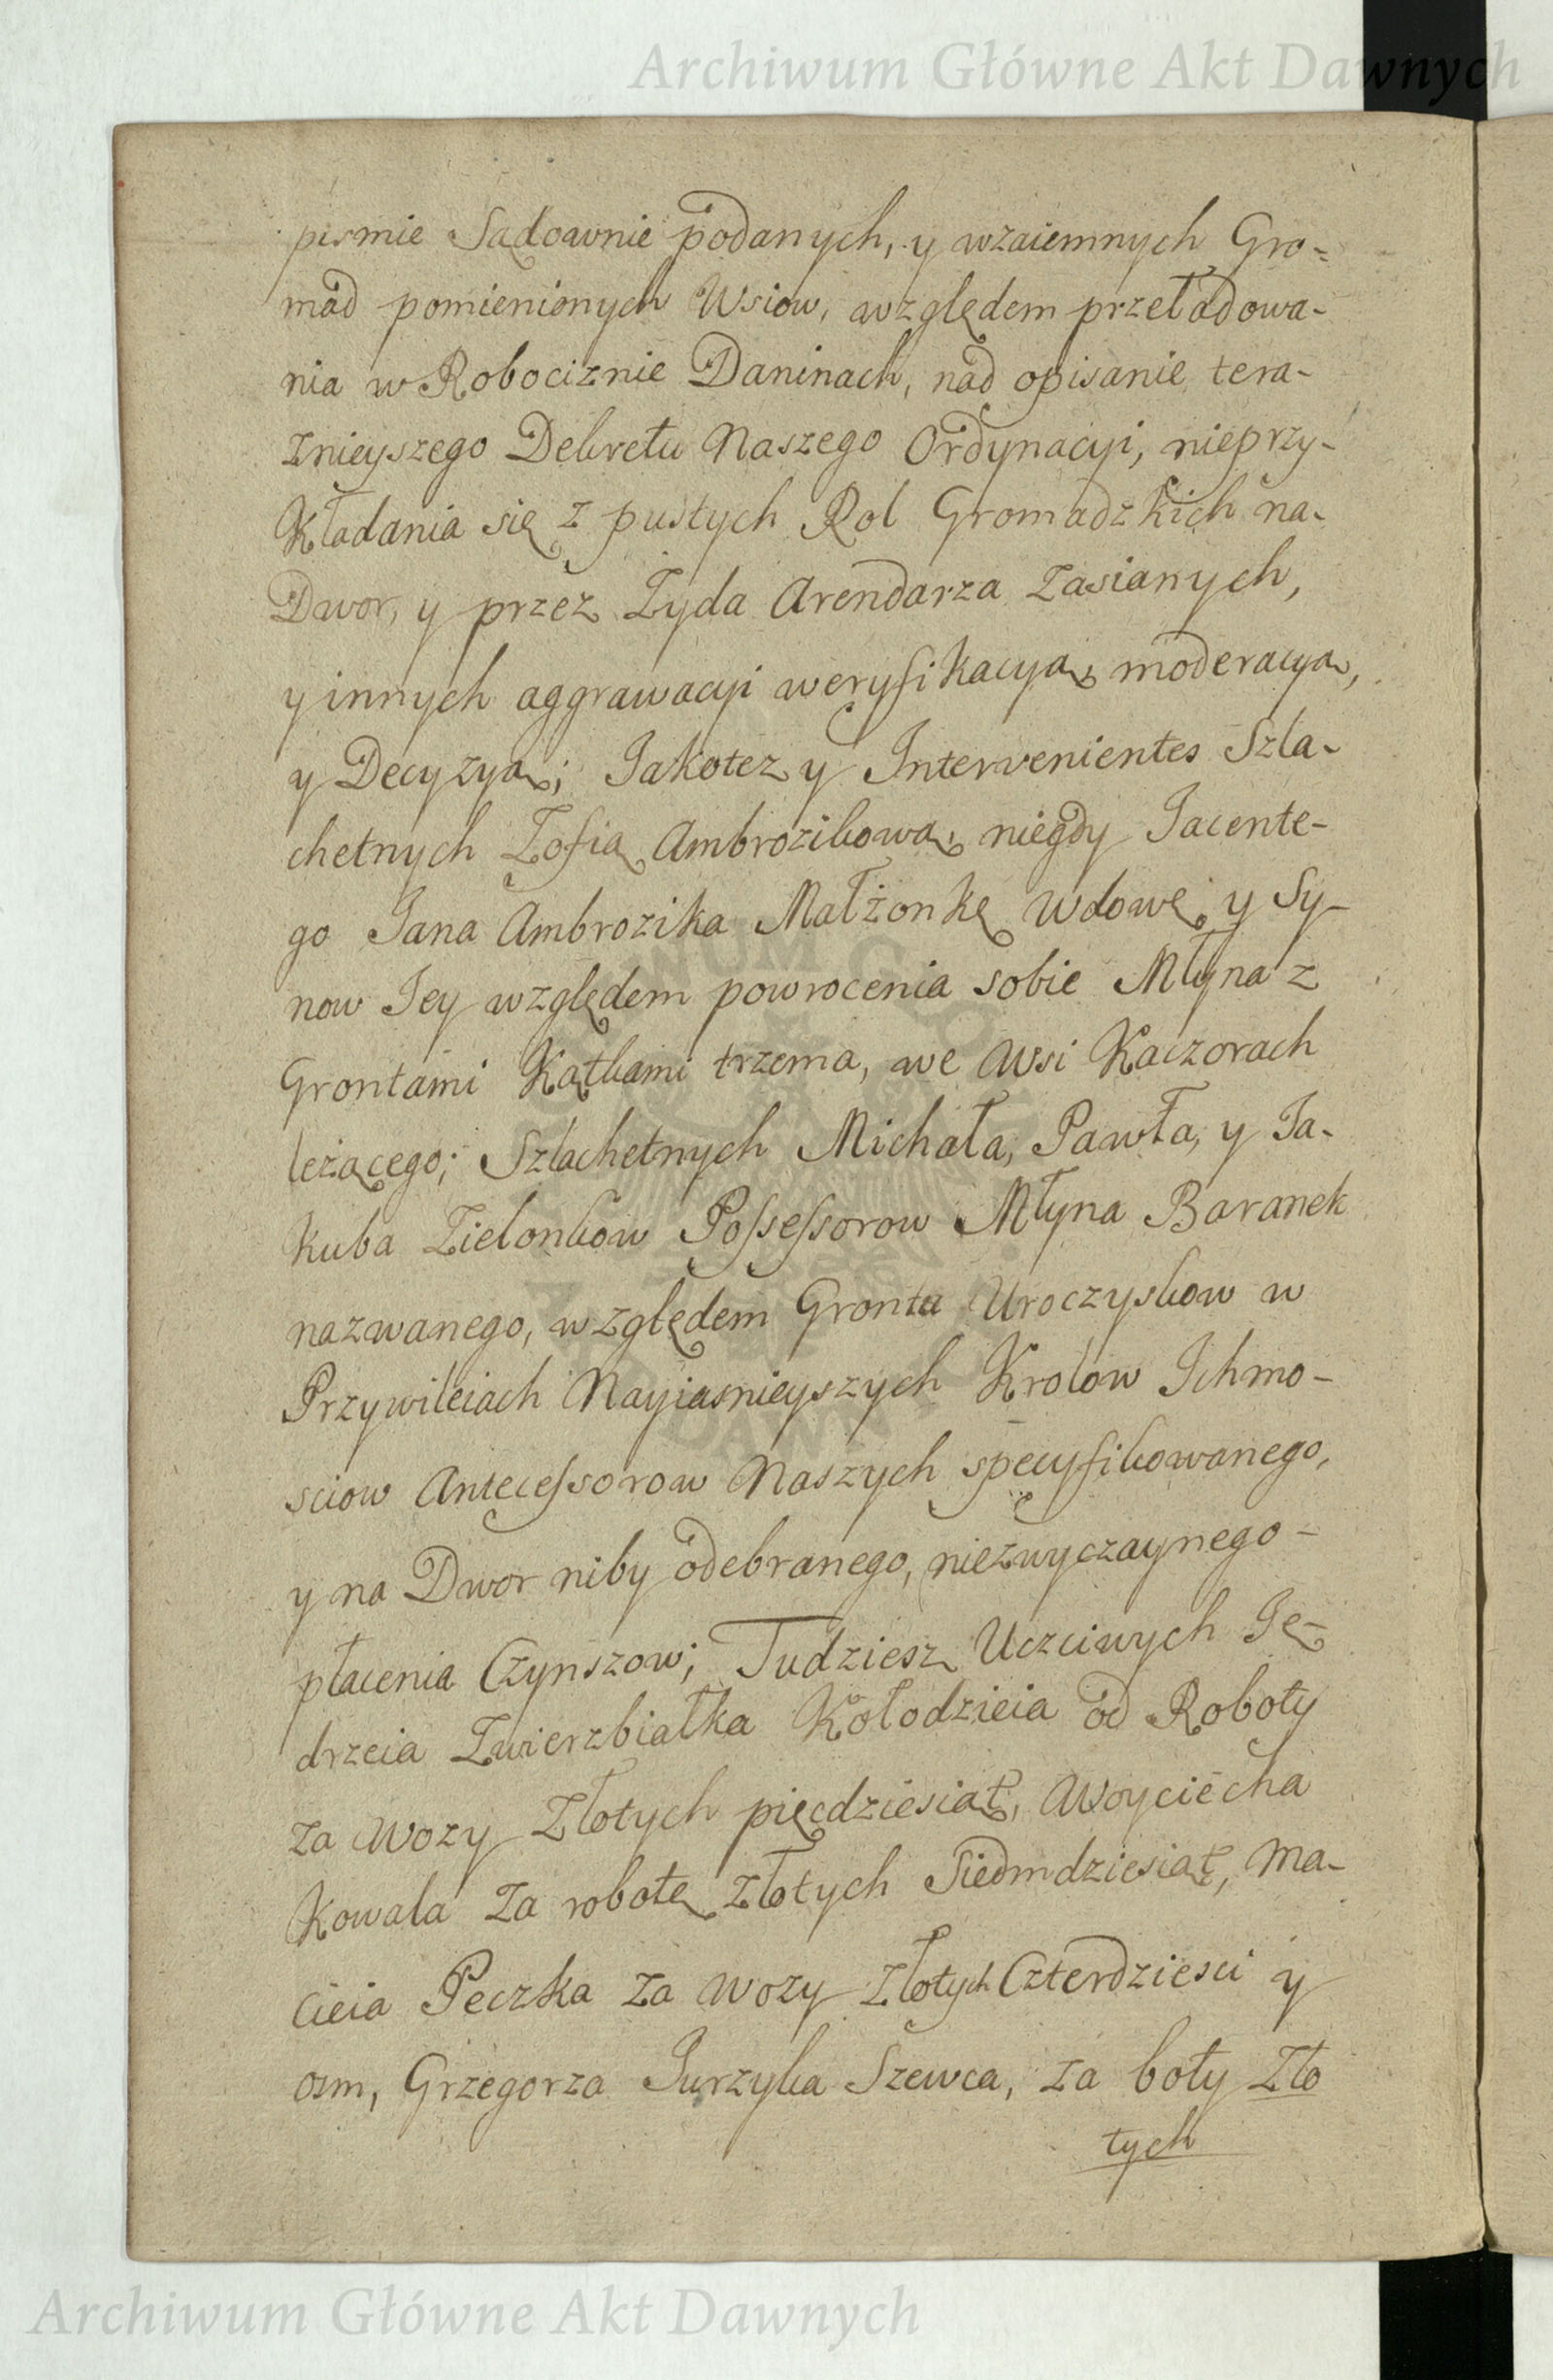 Archiwum Główne Akt Dawnych
pismie Sądownie podanych, y wzaiemnych Gro=
mad pomienionych Wsiow, względem przeładowa-
nia w Robociznie Daninach, nad opisanie tera-
znieyszego Dekretu Naszego Ordynacyi, nieprzy-
kładania się z pustych Rol Gromadzkich na-
Dwor, y przez Żyda Arendarza zasianych,
y innych aggrawacyi weryfikacyą, moderacyą,
y Decyzyą; Jakotez y Intervenientes Szla-
chetnych Zofią Ambrozikową, niegdy Jacente-
go Jana Ambrozika Małżonkę Wdowę, y Sy-
now Jey względem powrocenia sobie Młyna z
Grontami Kątkami trzema, we Wsi Kaczorach
leżącego; Szlachetnych Michała, Pawła, y Ja-
kuba Zielonkow Possessorow Młyna Baranek
nazwanego, względem Grontu Uroczyskow w
Przywileiach Nayiasnieyszych Krolow Ichmo-
sciow Antecessorow Naszych specyfikowanego,
y na Dwor niby odebranego, niezwyczaynego-
płacenia Czynszow; Tudziesz Uczciwych Ję-
drzeia Zwierzbiałka Kołodzieia od Roboty
za wozy Złotych pięcdziesiąt, Woyciecha
Kowala za robotę złotych Siedmdziesiąt, Ma-
cieia Peczka za wozy złotych Czterdziesci y
osm, Grzegorza Jurzyka Szewca, za boty Zło
tych
Archiwum Główne Akt Dawnych